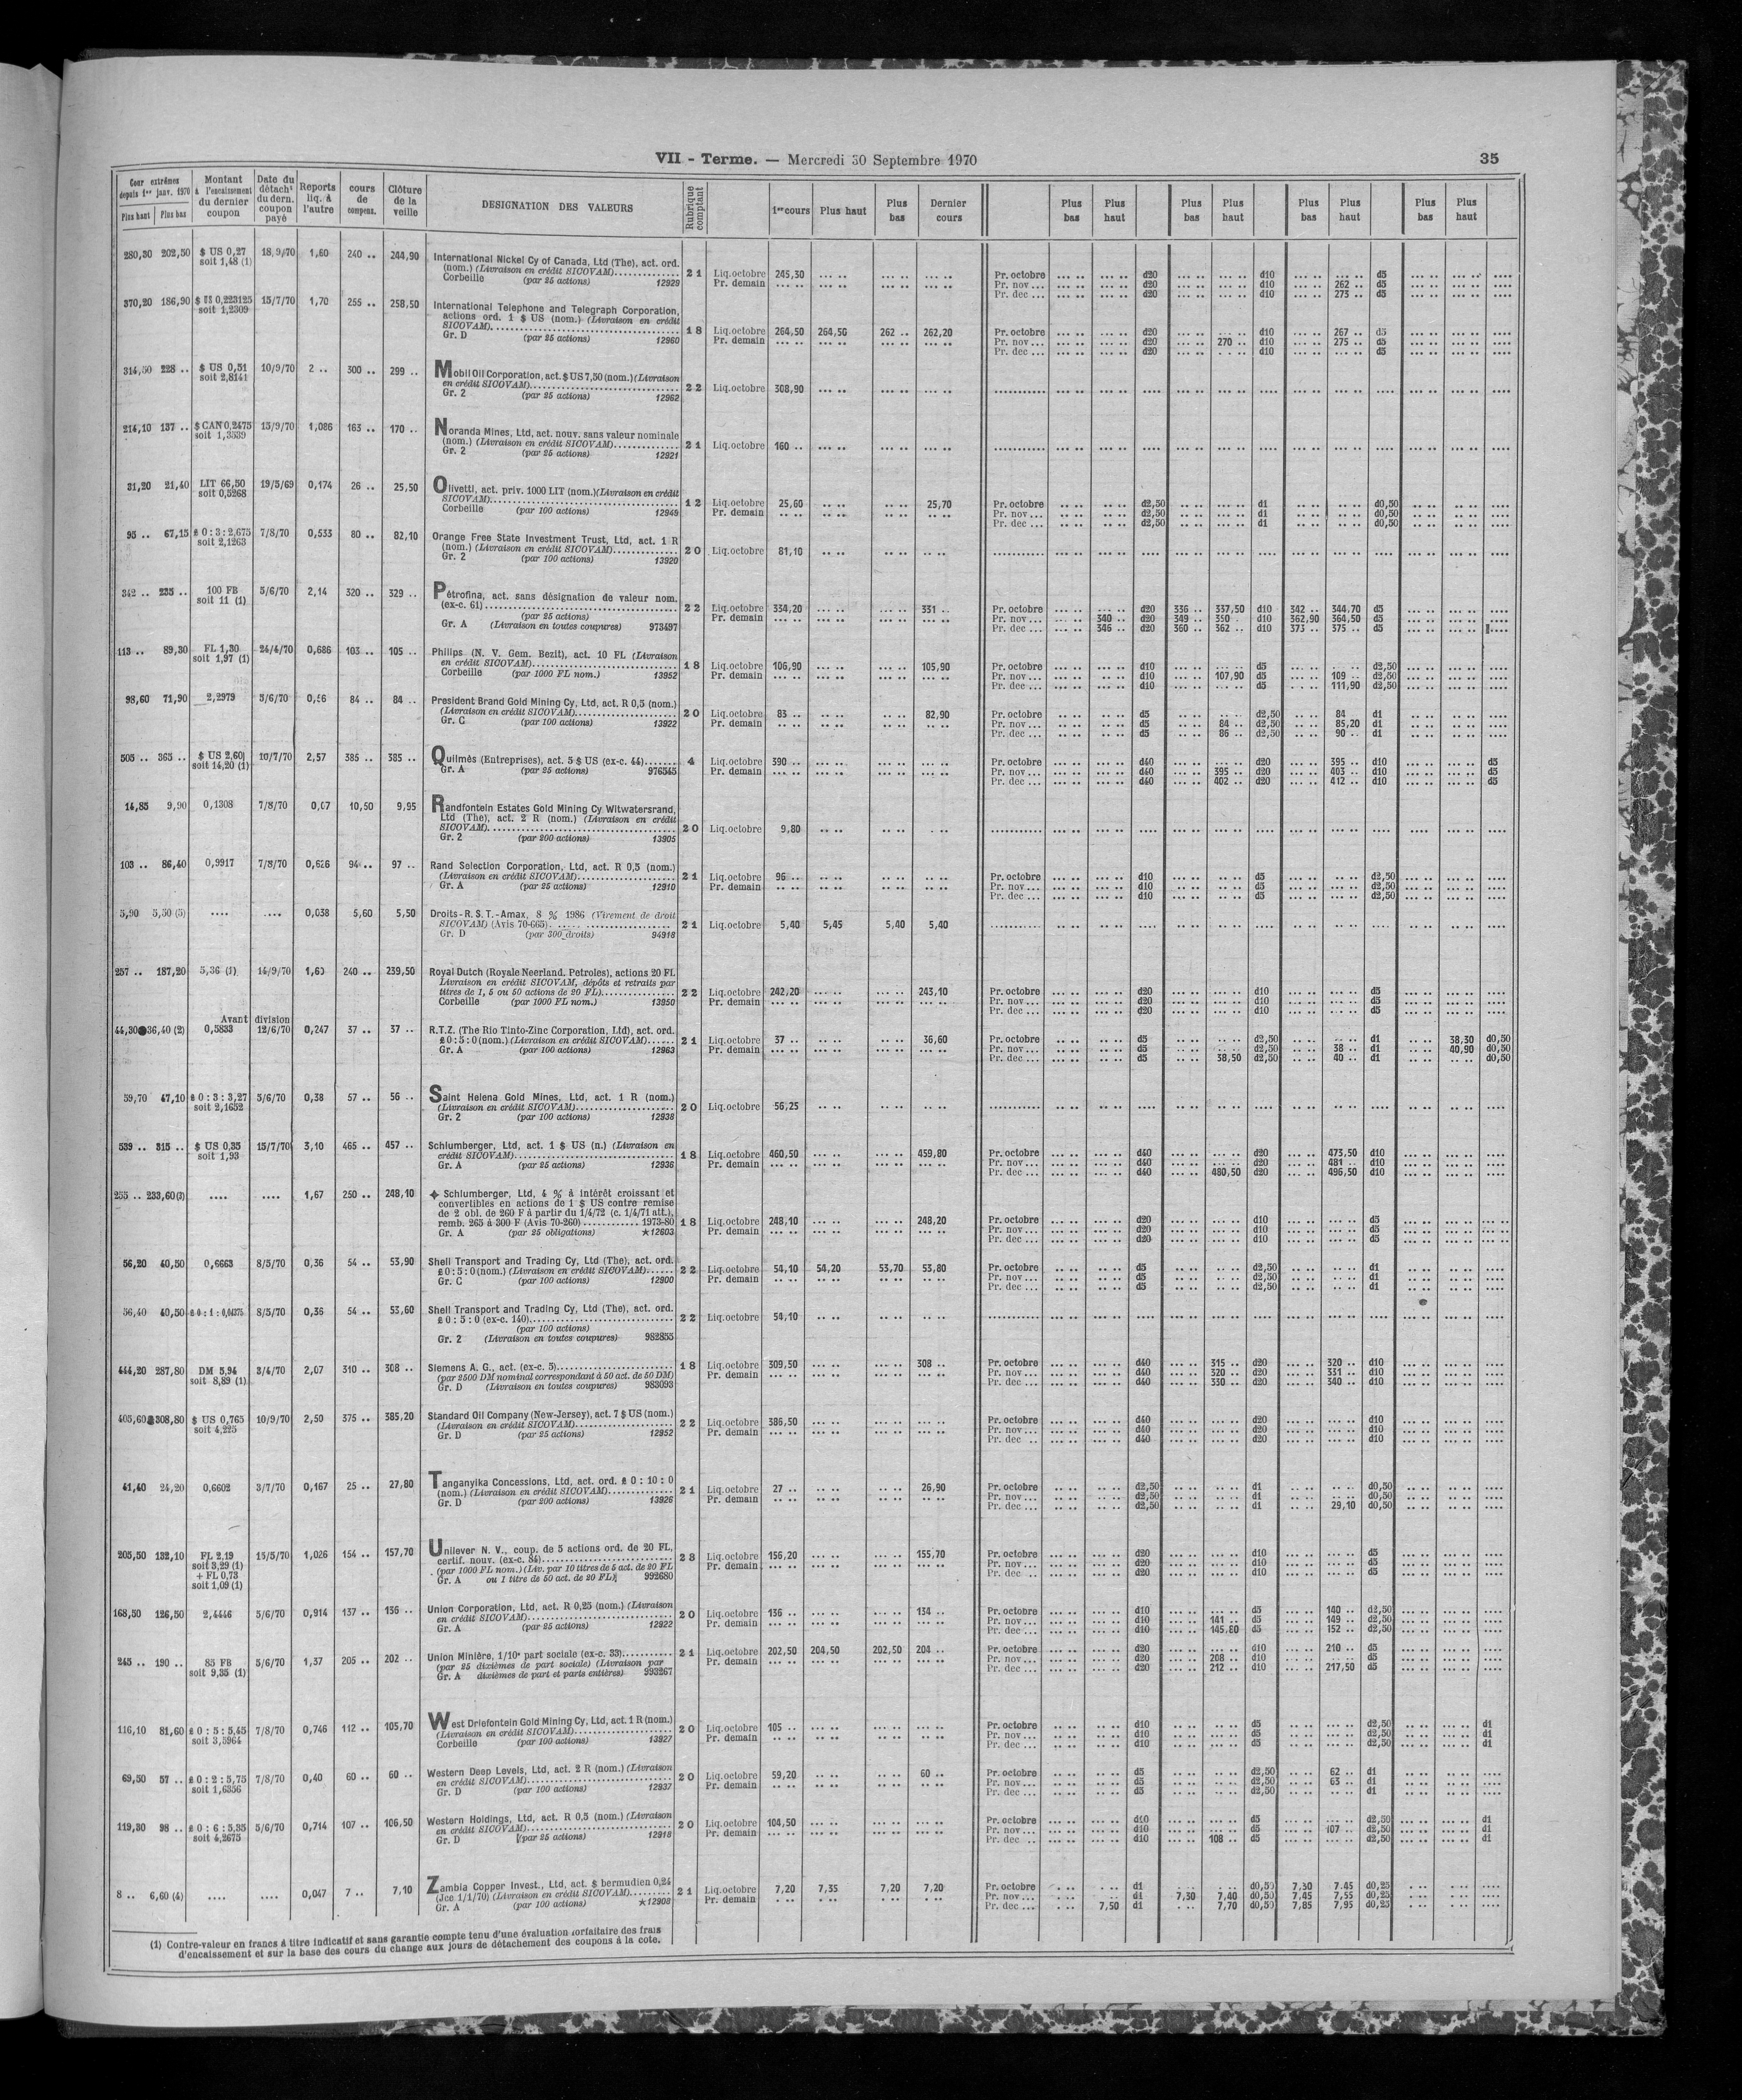 VII - Terme. — Mercredi 30 Septembre 1970 35
Cour extrêmes depuis 1er janv. 1970 Plus haut Plus bas
Montant à l'encaissement du dernier coupon
Date du détacht du dern. coupon payé
Reports liq. à l'autre
cours de compens.
Clôture de la veille
DESIGNATION DES VALEURS
Rubrique comptant
1er cours Plus haut Plus bas Dernier cours
Plus bas Plus haut Plus bas Plus haut Plus bas Plus haut Plus bas Plus haut
280,30 202,50 $ US 0,27 18/9/70 1,60 240 .. 244,90
soit 1,48 (1)
International Nickel Cy of Canada, Ltd (The), act. ord.
(nom.) (Livraison en crédit SICOVAM)
Corbeille (par 25 actions) 12929
21 Liq.octobre 245,30 Pr. octobre d20 d10 d5
Pr. demain Pr. nov ... d20 d10 262 .. d5
Pr. dec ... d20 d10 273 .. d5
370,20 186,90 $ US 0,223125 15/7/70 1,70 255 .. 258,50
soit 1,2309
International Telephone and Telegraph Corporation,
actions ord. 1 $ US (nom.) (Livraison en crédit
SICOVAM)
Gr. D (par 25 actions) 12960
18 Liq.octobre 264,50 264,50 262 .. 262,20 Pr. octobre d20 d10 267 .. d5
Pr. demain Pr. nov ... d20 270 .. d10 275 .. d5
Pr. dec ... d20 d10 d5
314,50 228 .. $ US 0,51 10/9/70 2 .. 300 .. 299 ..
soit 2,8141
Mobil Oil Corporation, act. $ US 7,50 (nom.) (Livraison
en crédit SICOVAM)
Gr. 2 (par 25 actions) 12962
22 Liq.octobre 308,90
214,10 137 .. $ CAN 0,2475 15/9/70 1,086 163 .. 170 ..
soit 1,3539
Noranda Mines, Ltd, act. nouv. sans valeur nominale
(nom.) (Livraison en crédit SICOVAM)
Gr. 2 (par 25 actions) 12921
21 Liq.octobre 160 ..
31,20 21,40 LIT 66,50 19/5/69 0,174 26 .. 25,50
soit 0,5268
Olivetti, act. priv. 1000 LIT (nom.) (Livraison en crédit
SICOVAM)
Corbeille (par 100 actions) 12949
12 Liq.octobre 25,60 25,70 Pr. octobre d2,50 d1 d0,50
Pr. demain Pr. nov ... d2,50 d1 d0,50
Pr. dec ... d2,50 d1 d0,50
95 .. 67,15 £ 0 : 3 : 2,675 7/8/70 0,533 80 .. 82,10
soit 2,1263
Orange Free State Investment Trust, Ltd, act. 1 R
(nom.) (Livraison en crédit SICOVAM)
Gr. 2 (par 100 actions) 13920
20 Liq.octobre 81,10
342 .. 235 .. 100 FB 5/6/70 2,14 320 .. 329 ..
soit 11 (1)
Pétrofina, act. sans désignation de valeur nom.
(ex-c. 61)
(par 25 actions)
Gr. A (Livraison en toutes coupures) 973497
22 Liq.octobre 334,20 331 .. Pr. octobre d20 336 .. 337,50 d10 342 .. 344,70 d5
Pr. demain Pr. nov ... 340 .. d20 349 .. 350 d10 362,90 364,50 d5
Pr. dec ... 346 .. d20 360 .. 362 .. d10 373 .. 375 .. d5
113 .. 89,30 FL 1,30 24/4/70 0,686 103 .. 105 ..
soit 1,97 (1)
Philips (N. V. Gem. Bezit), act. 10 FL (Livraison
en crédit SICOVAM)
Corbeille (par 1000 FL nom.) 13952
18 Liq.octobre 106,90 105,90 Pr. octobre d10 d5 d2,50
Pr. demain Pr. nov ... d10 107,90 d5 109 .. d2,50
Pr. dec ... d10 d5 111,90 d2,50
98,60 71,90 2,2979 5/6/70 0,56 84 .. 84 ..
President Brand Gold Mining Cy, Ltd, act. R 0,5 (nom.)
(Livraison en crédit SICOVAM)
Gr. C (par 100 actions) 13922
20 Liq.octobre 83 .. 82,90 Pr. octobre d5 d2,50 84 d1
Pr. demain Pr. nov ... d5 84 .. d2,50 85,20 d1
Pr. dec ... d5 86 .. d2,50 90 .. d1
505 .. 365 .. $ US 2,60 10/7/70 2,57 385 .. 385 ..
soit 14,20 (1)
Quilmès (Entreprises), act. 5 $ US (ex-c. 44)
Gr. A (par 25 actions) 976545
4 Liq.octobre 390 .. Pr. octobre d40 d20 395 .. d10 d5
Pr. demain Pr. nov ... d40 395 .. d20 403 .. d10 d5
Pr. dec ... d40 402 .. d20 412 .. d10 d5
14,85 9,90 0,1308 7/8/70 0,07 10,50 9,95
Randfontein Estates Gold Mining Cy Witwatersrand,
Ltd (The), act. 2 R (nom.) (Livraison en crédit
SICOVAM)
Gr. 2 (par 200 actions) 13905
20 Liq.octobre 9,80
103 .. 86,40 0,9917 7/8/70 0,626 94 .. 97 ..
Rand Selection Corporation, Ltd, act. R 0,5 (nom.)
(Livraison en crédit SICOVAM)
Gr. A (par 25 actions) 12910
21 Liq.octobre 96 .. Pr. octobre d10 d5 d2,50
Pr. demain Pr. nov ... d10 d5 d2,50
Pr. dec ... d10 d5 d2,50
5,90 5,50 (5) .... .... 0,038 5,60 5,50
Droits - R. S. T. - Amax, 8 % 1986 (Virement de droit
SICOVAM) (Avis 70-665)
Gr. D (par 300 droits) 94916
21 Liq.octobre 5,40 5,45 5,40 5,40
257 .. 187,20 5,36 (1) 14/9/70 1,60 240 .. 239,50
Royal Dutch (Royale Neerland. Petroles), actions 20 FL
Livraison en crédit SICOVAM, dépôts et retraits par
titres de 1, 5 ou 50 actions de 20 FL)
Corbeille (par 1000 FL nom.) 13950
22 Liq.octobre 242,20 243,10 Pr. octobre d20 d10 d5
Pr. demain Pr. nov ... d20 d10 d5
Pr. dec ... d20 d10 d5
Avant division
44,30 36,40 (2) 0,5833 12/6/70 0,247 37 .. 37 ..
R.T.Z. (The Rio Tinto-Zinc Corporation, Ltd), act. ord.
£ 0 : 5 : 0 (nom.) (Livraison en crédit SICOVAM)
Gr. A (par 100 actions) 12963
21 Liq.octobre 37 .. 36,60 Pr. octobre d5 d2,50 d1 38,30 d0,50
Pr. demain Pr. nov ... d5 d2,50 38 .. d1 40,90 d0,50
Pr. dec ... d5 38,50 d2,50 40 .. d1 d0,50
59,70 47,10 £ 0 : 3 : 3,27 5/6/70 0,38 57 .. 56 ..
soit 2,1652
Saint Helena Gold Mines, Ltd, act. 1 R (nom.)
(Livraison en crédit SICOVAM)
Gr. 2 (par 100 actions) 12938
20 Liq.octobre 56,25
539 .. 315 .. $ US 0,35 15/7/70 3,10 465 .. 457 ..
soit 1,93
Schlumberger, Ltd, act. 1 $ US (n.) (Livraison en
crédit SICOVAM)
Gr. A (par 25 actions) 12936
18 Liq.octobre 460,50 459,80 Pr. octobre d40 d20 473,50 d10
Pr. demain Pr. nov ... d40 d20 481 .. d10
Pr. dec ... d40 480,50 d20 496,50 d10
255 .. 233,60 (3) .... .... 1,67 250 .. 248,10
✦ Schlumberger, Ltd, 4 % à intérêt croissant et
convertibles en actions de 1 $ US contre remise
de 2 obl. de 260 F à partir du 1/4/72 (c. 1/4/71 att.),
remb. 265 à 300 F (Avis 70-260) 1973-80
Gr. A (par 25 obligations) ★12603
18 Liq.octobre 248,10 248,20 Pr. octobre d20 d10 d5
Pr. demain Pr. nov ... d20 d10 d5
Pr. dec ... d20 d10 d5
56,20 40,50 0,6663 8/5/70 0,36 54 .. 53,90
Shell Transport and Trading Cy, Ltd (The), act. ord.
£ 0 : 5 : 0 (nom.) (Livraison en crédit SICOVAM)
Gr. C (par 100 actions) 12900
22 Liq.octobre 54,10 54,20 53,70 53,80 Pr. octobre d5 d2,50 d1
Pr. demain Pr. nov ... d5 d2,50 d1
Pr. dec ... d5 d2,50 d1
56,40 40,50 8/5/70 0,36 54 .. 53,60
Shell Transport and Trading Cy, Ltd (The), act. ord.
£ 0 : 5 : 0 (ex-c. 140)
(par 100 actions)
Gr. 2 (Livraison en toutes coupures) 982855
22 Liq.octobre 54,10
444,20 287,80 DM 5,94 3/4/70 2,07 310 .. 308 ..
soit 8,89 (1)
Siemens A. G., act. (ex-c. 5)
(par 2500 DM nominal correspondant à 50 act. de 50 DM)
Gr. D (Livraison en toutes coupures) 983093
18 Liq.octobre 309,50 308 .. Pr. octobre d40 315 .. d20 320 .. d10
Pr. demain Pr. nov ... d40 320 .. d20 331 .. d10
Pr. dec ... d40 330 .. d20 340 .. d10
405,60 308,80 $ US 0,765 10/9/70 2,50 375 .. 385,20
soit 4,225
Standard Oil Company (New-Jersey), act. 7 $ US (nom.)
(Livraison en crédit SICOVAM)
Gr. D (par 25 actions) 12952
22 Liq.octobre 386,50 Pr. octobre d40 d20 d10
Pr. demain Pr. nov ... d40 d20 d10
Pr. dec .. d40 d20 d10
41,40 24,20 0,6602 3/7/70 0,167 25 .. 27,80
Tanganyika Concessions, Ltd, act. ord. £ 0 : 10 : 0
(nom.) (Livraison en crédit SICOVAM)
Gr. D (par 200 actions) 13926
21 Liq.octobre 27 .. 26,90 Pr. octobre d2,50 d1 d0,50
Pr. demain Pr. nov ... d2,50 d1 d0,50
Pr. dec ... d2,50 d1 29,10 d0,50
205,50 132,10 FL 2,19 15/5/70 1,026 154 .. 157,70
soit 3,29 (1)
+ FL 0,73
soit 1,09 (1)
Unilever N. V., coup. de 5 actions ord. de 20 FL,
certif. nouv. (ex-c. 84)
(par 1000 FL nom.) (Liv. par 10 titres de 5 act. de 20 FL
Gr. A ou 1 titre de 50 act. de 20 FL) 992680
28 Liq.octobre 156,20 155,70 Pr. octobre d20 d10 d5
Pr. demain Pr. nov ... d20 d10 d5
Pr. dec .. d20 d10 d5
168,50 126,50 2,4446 5/6/70 0,914 137 .. 136 ..
Union Corporation, Ltd, act. R 0,25 (nom.) (Livraison
en crédit SICOVAM)
Gr. A (par 25 actions) 12922
20 Liq.octobre 136 .. 134 .. Pr. octobre d10 d5 140 .. d2,50
Pr. demain Pr. nov ... d10 141 .. d5 149 .. d2,50
Pr. dec ... d10 145,80 d5 152 .. d2,50
245 .. 190 .. 85 FB 5/6/70 1,37 205 .. 202 ..
soit 9,35 (1)
Union Minière, 1/10e part sociale (ex-c. 33)
(par 25 dixièmes de part sociale) (Livraison par
Gr. A dixièmes de part et parts entières) 993267
21 Liq.octobre 202,50 204,50 202,50 204 .. Pr. octobre d20 d10 210 .. d5
Pr. demain Pr. nov ... d20 208 .. d10 d5
Pr. dec ... d20 212 .. d10 217,50 d5
116,10 81,60 £ 0 : 5 : 5,45 7/8/70 0,746 112 .. 105,70
soit 3,5964
West Driefontein Gold Mining Cy, Ltd, act. 1 R (nom.)
(Livraison en crédit SICOVAM)
Corbeille (par 100 actions) 13927
20 Liq.octobre 105 .. Pr. octobre d10 d5 d2,50 d1
Pr. demain Pr. nov d10 d5 d2,50 d1
Pr. dec ... d10 d5 d2,50 d1
69,50 57 .. £ 0 : 2 : 5,75 7/8/70 0,40 60 .. 60 ..
soit 1,6356
Western Deep Levels, Ltd, act. 2 R (nom.) (Livraison
en crédit SICOVAM)
Gr. D (par 100 actions) 12937
20 Liq.octobre 59,20 60 .. Pr. octobre d5 d2,50 62 .. d1
Pr. demain Pr. nov ... d5 d2,50 63 .. d1
Pr. dec ... d5 d2,50 d1
119,30 98 .. £ 0 : 6 : 5,35 5/6/70 0,714 107 .. 106,50
soit 4,2675
Western Holdings, Ltd, act. R 0,5 (nom.) (Livraison
en crédit SICOVAM)
Gr. D (par 25 actions) 12918
20 Liq.octobre 104,50 Pr. octobre d10 d5 d2,50 d1
Pr. demain Pr. nov ... d10 d5 107 .. d2,50 d1
Pr. dec ... d10 108 .. d5 d2,50 d1
8 .. 6,60 (4) .... .... 0,047 7 .. 7,10
Zambia Copper Invest., Ltd, act. $ bermudien 0,24
(Jce 1/1/70) (Livraison en crédit SICOVAM)
Gr. A (par 100 actions) ★12908
21 Liq.octobre 7,20 7,35 7,20 7,20 Pr. octobre d1 d0,50 7,30 7.45 d0,25
Pr. demain Pr. nov ... d1 7,30 7,40 d0,50 7,45 7,55 d0,25
Pr. dec ... 7,50 d1 7,70 d0,50 7,85 7,95 d0,25
(1) Contre-valeur en francs à titre indicatif et sans garantie compte tenu d'une évaluation forfaitaire des frais
d'encaissement et sur la base des cours du change aux jours de détachement des coupons à la cote.